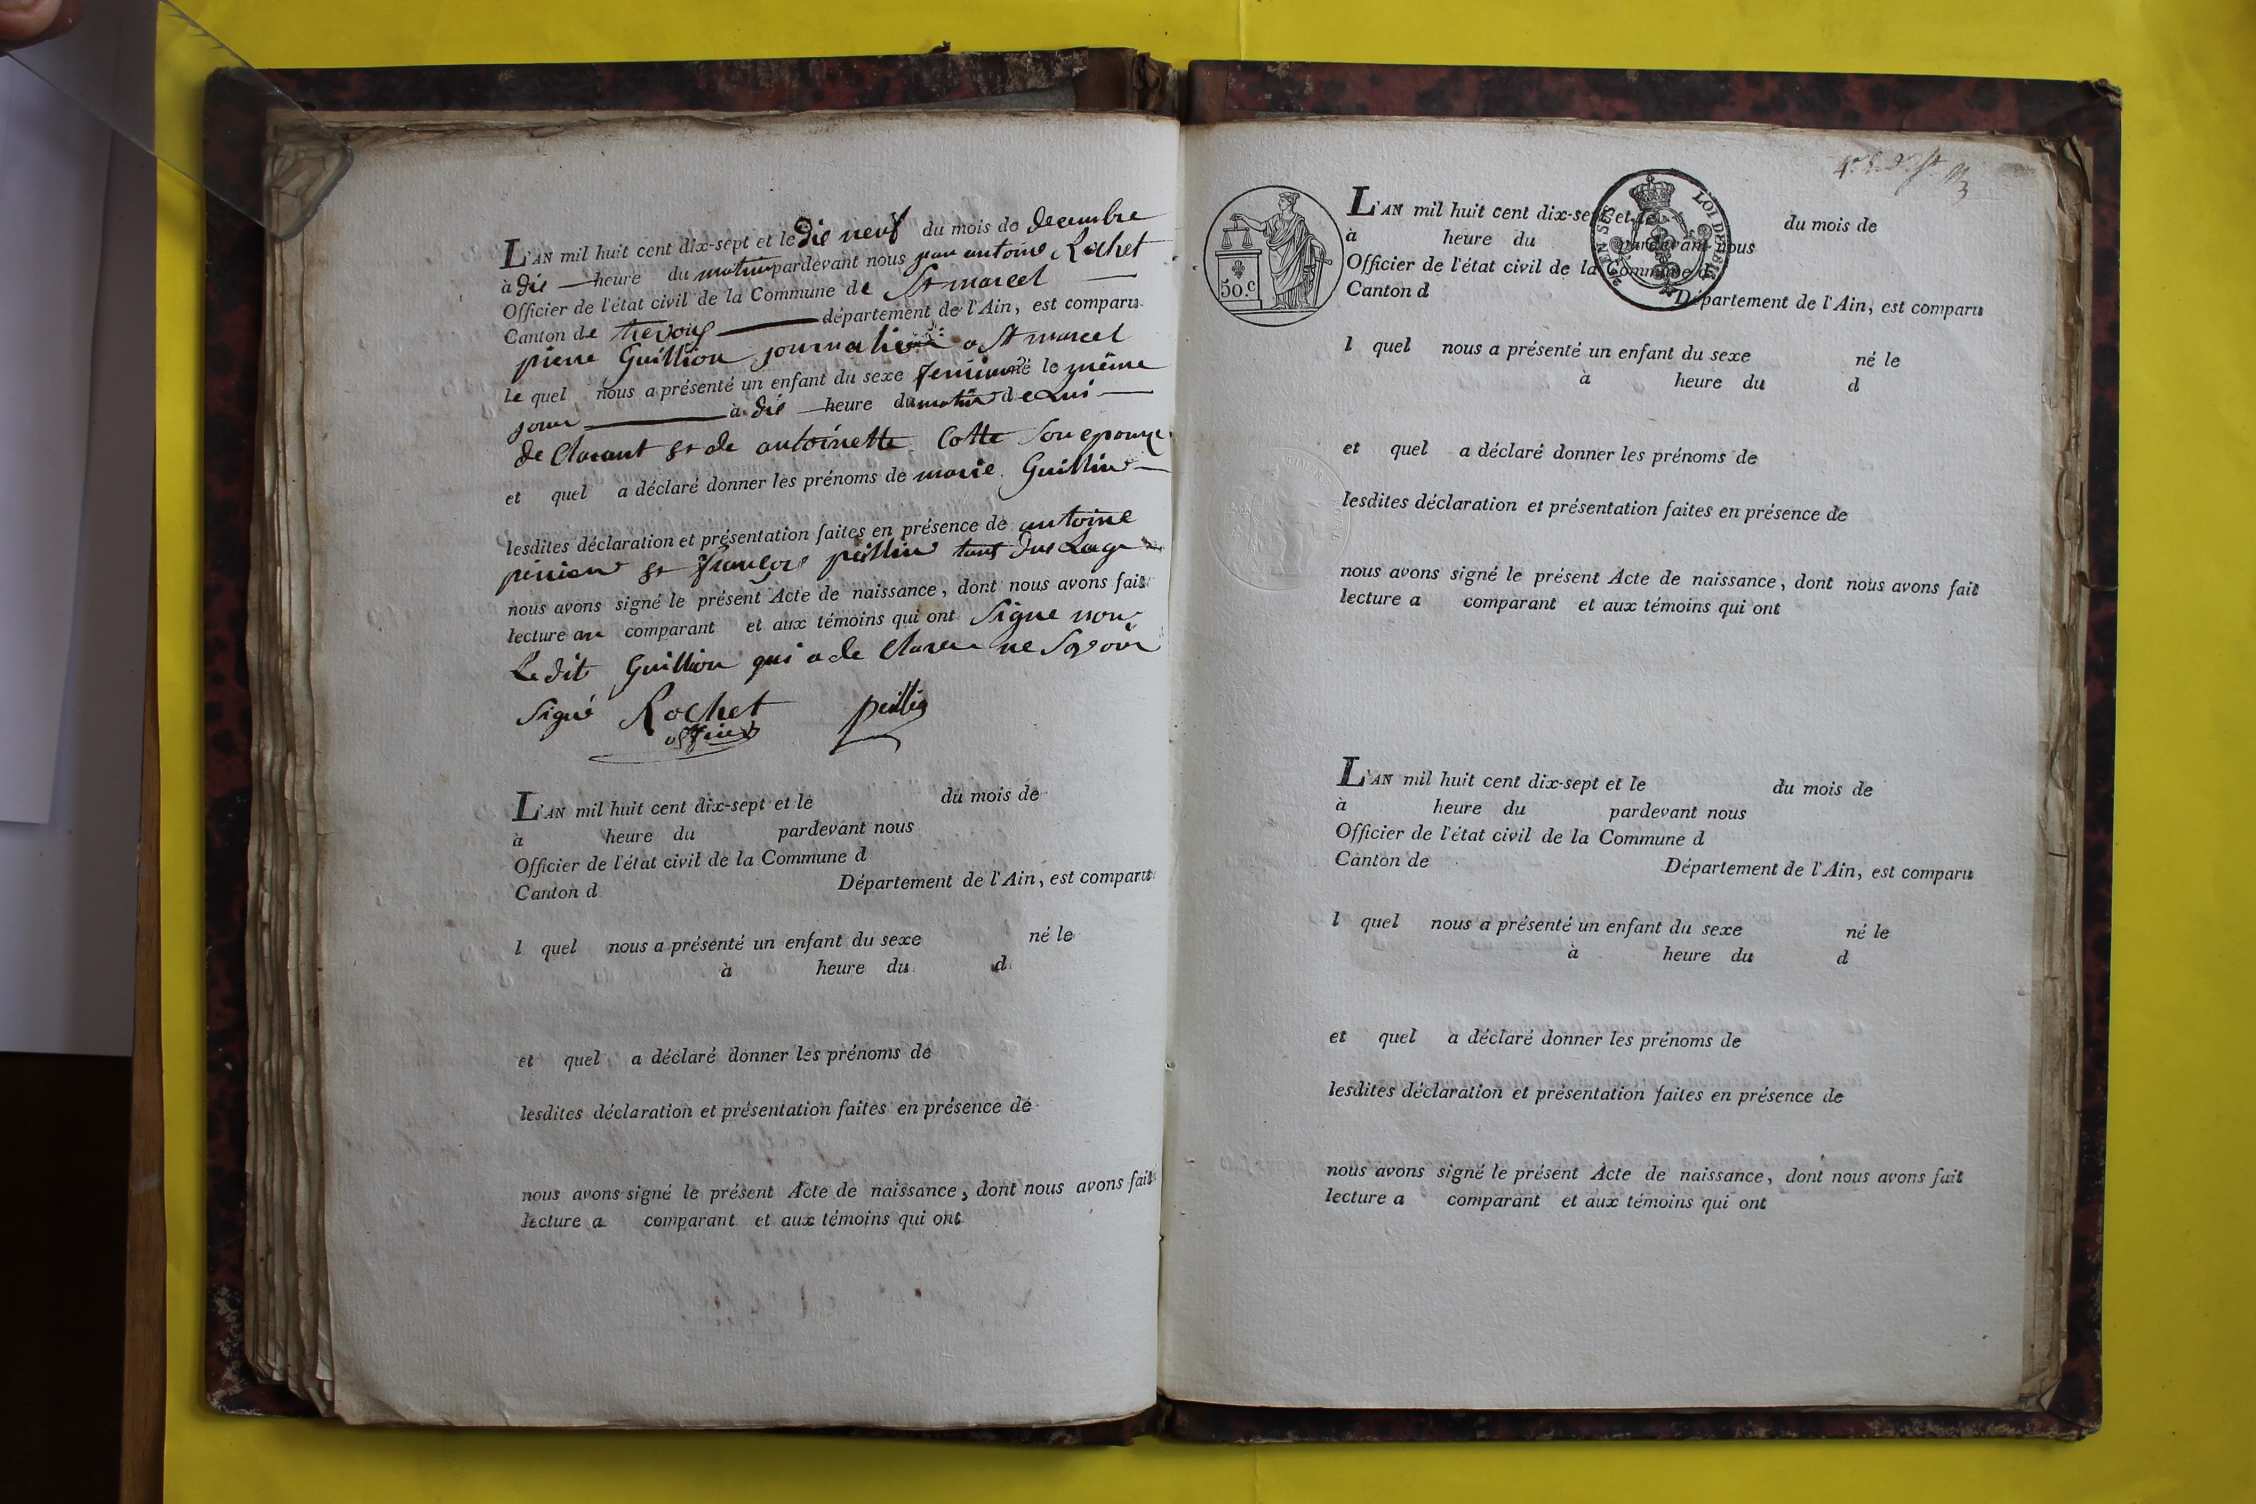 L'AN mil huit cent dix-sept et le Die neuf du mois de decembre
à Die heure du matin pardevant nous jean antoine Rochet
Officier de l'état civil de la Commune de St marcel
Canton de trevoux département de l'Ain, est comparu
pierre Guillion journalier a St marcel
le quel nous a présenté un enfant du sexe feminin né le même
jour à die heure du matin de Lui
de Clarant et de antoinette Cotte Son epouse
et quel a déclaré donner les prénoms de marie Guillin
lesdites déclaration et présentation faites en présence de antoine
et françois peillin tous due Lage
nous avons signé le présent Acte de naissance, dont nous avons fait
lecture au comparant et aux témoins qui ont Signe non
Le dit Guillion qui a de Clare ne Savoir
Signé Rochet peillin
L'AN mil huit cent dix-sept et le du mois de
à heure du pardevant nous
Officier de l'état civil de la Commune d
Canton d Département de l'Ain, est comparu
l quel nous a présenté un enfant du sexe né le
à heure du d
et quel a déclaré donner les prénoms de
lesdites déclaration et présentation faites en présence de
nous avons signé le présent Acte de naissance, dont nous avons fait
lecture a comparant et aux témoins qui ont
50.c
LOI DE 1816
L'AN mil huit cent dix-sept et le du mois de
à heure du pardevant nous
Officier de l'état civil de la Commune d
Canton d Département de l'Ain, est comparu
l quel nous a présenté un enfant du sexe né le
à heure du d
et quel a déclaré donner les prénoms de
lesdites déclaration et présentation faites en présence de
nous avons signé le présent Acte de naissance, dont nous avons fait
lecture a comparant et aux témoins qui ont
L'AN mil huit cent dix-sept et le du mois de
à heure du pardevant nous
Officier de l'état civil de la Commune d
Canton de Département de l'Ain, est comparu
l quel nous a présenté un enfant du sexe né le
à heure du d
et quel a déclaré donner les prénoms de
lesdites déclaration et présentation faites en présence de
nous avons signé le présent Acte de naissance, dont nous avons fait
lecture a comparant et aux témoins qui ont